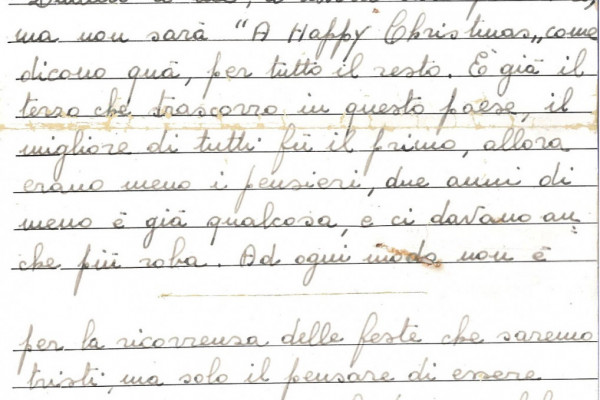 ma non sarà "A Happy Christmas„ come
dicono quà, per tutto il resto. E' già il
terzo che trascorro in questo paese, il
migliore di tutti fù il primo, allora
erano meno i pensieri, due anni di
meno è già qualcosa, e ci davano an
che più roba. Ad ogni modo non è
per la ricorrensa delle feste che saremo
tristi, ma solo il pensare di essere